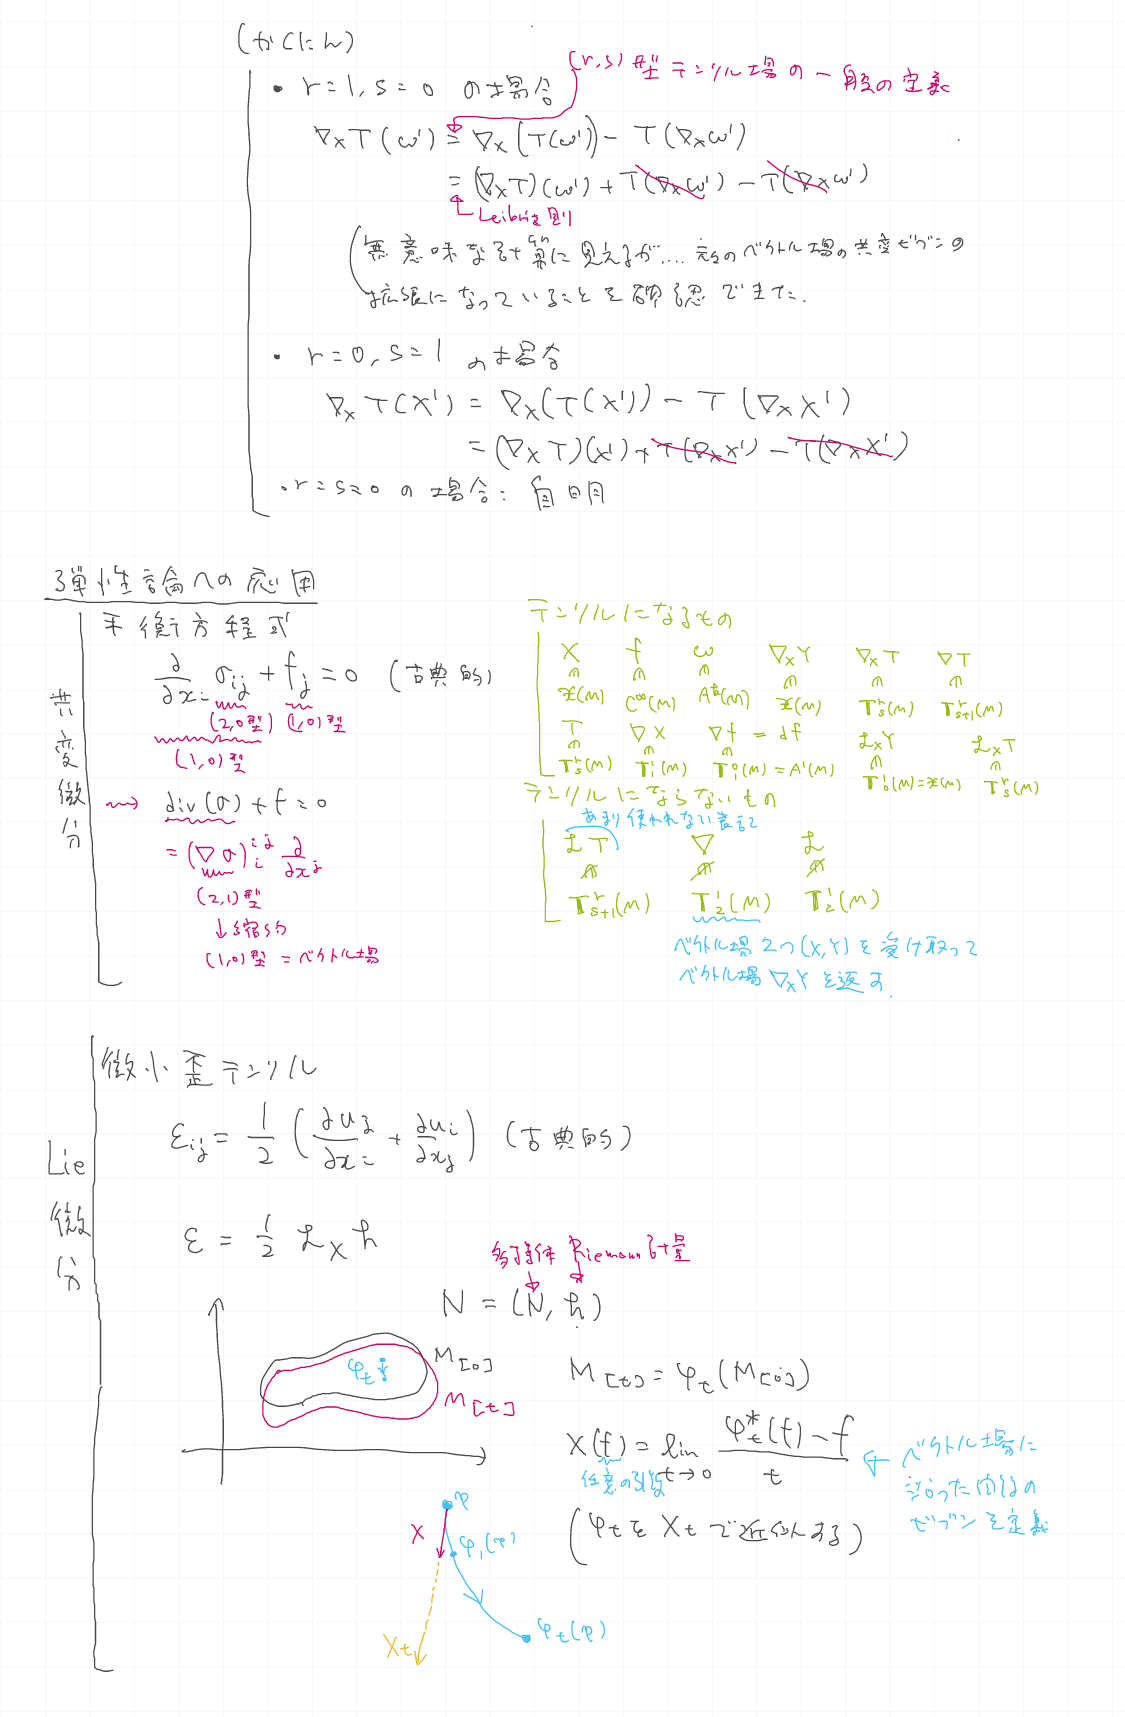 (かくにん)
(r,s)型テンソル場の一般の定義
• r=1, s=0 の場合
∇_X T(ω') = ∇_X(T(ω')) − T(∇_X ω')
= (∇_X T)(ω') + T(∇_X ω') − T(∇_X ω')
Leibniz則
(無意味な計算に見えるが.... 元々のベクトル場の共変ビブンの
拡張になっていることを確認できた.
• r=0, s=1 の場合
∇_X T(X') = ∇_X(T(X')) − T(∇_X X')
= (∇_X T)(X') + T(∇_X X') − T(∇_X X')
• r=s=0 の場合: 自明
弾性論への応用
共変微分
平衡方程式
∂/∂x_i σ_ij + f_j = 0 (古典的)
(2,0型) (1,0)型
(1,0)型
⇝ div(σ) + f = 0
= (∇σ)^{ij}_i ∂/∂x^j
(2,1)型
↓縮約
(1,0)型 = ベクトル場
テンソルになるもの
X f ω ∇_X Y ∇_X T ∇T
∩ ∩ ∩ ∩ ∩ ∩
𝔛(M) C^∞(M) A^k(M) 𝔛(M) T^r_s(M) T^r_{s+1}(M)
T ∇X ∇f = df £_X Y £_X T
∩ ∩ ∩ ∩ ∩
T^r_s(M) T^1_1(M) T^0_1(M) = A^1(M) T^1_0(M) = 𝔛(M) T^r_s(M)
テンソルにならないもの
あまり使われない表記
£T ∇ £
T^r_{s+1}(M) T^1_2(M) T^1_2(M)
ベクトル場2つ(X,Y)を受け取って
ベクトル場∇_X Y を返す.
Lie微分
微小歪テンソル
ε_ij = 1/2 (∂u_j/∂x_i + ∂u_i/∂x_j) (古典的)
ε = 1/2 £_X h
多様体 Riemann計量
N = (N, h)
φ_t
M_[0]
M_[t]
M_[t] = φ_t(M_[0])
X(f) = lim_{t→0} (φ_t^*(f) − f)/t
任意の引数
⇐ ベクトル場に
沿った内積の
ビブンを定義
(φ_t を X_t で近似する)
p
X
φ_1(p)
X_t
φ_t(p)